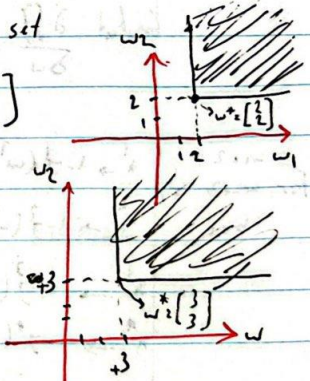 set
w2
]
2
1
w* = [2 2]
1 2
w1
w2
+3
w* = [3 3]
w
+3